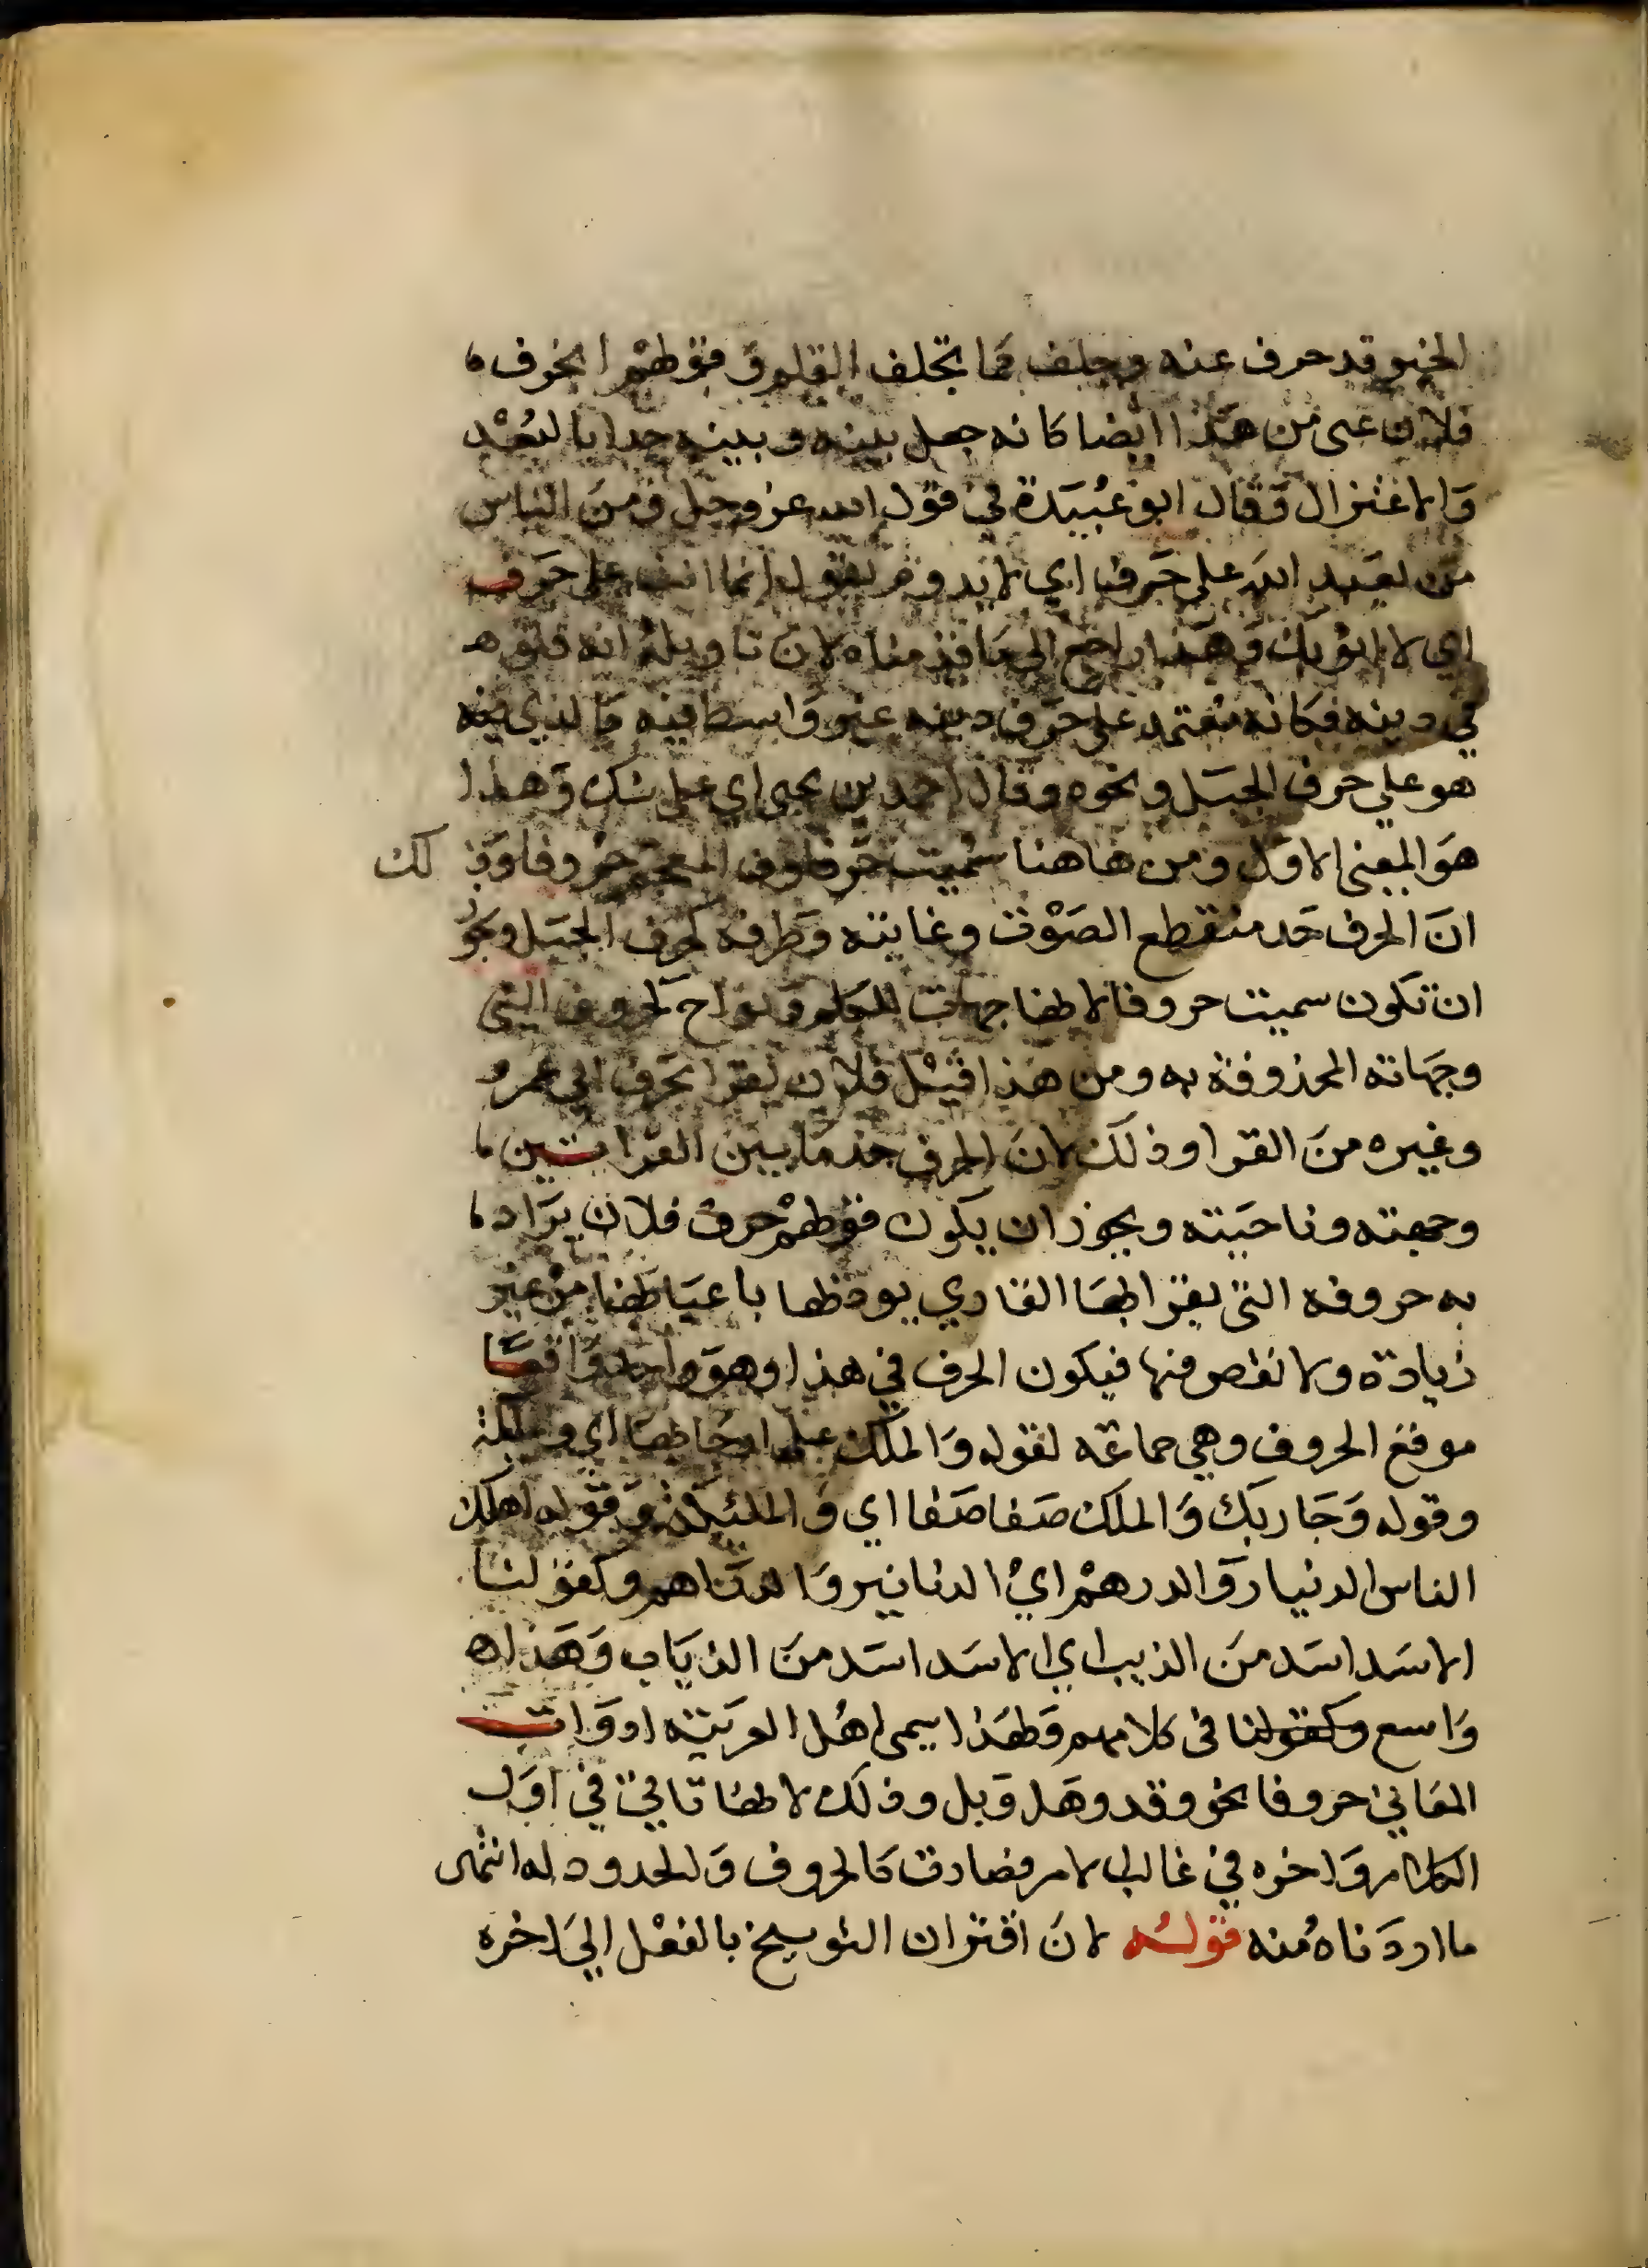 الخير قد حرف عنه وجلف كما تجلف القلم وقولهم انحرف
فلان عني من هذا ايضا كانه جعل بينه وبينه حدا بالبعد
والاعتزال وقال ابو عبيدة في قول الله عز وجل ومن الناس
من يعبد الله على حرف اي لا يدوم يقول انما انت على حرف
اي لا اثق بك وهذا راجع الى ما قدمناه لان تاويله انه قلق
في دينه فكانه معتمد على حرف دينه غير واسط فيه كالذي فيه
هو على حرف الجبل ونحوه وقال احمد بن يحيى اي على شك وهذا
هو المعنى الاول ومن هاهنا سميت حروف المعجم حروفا وذ لك
ان الحرف حد منقطع الصوت وغايته وطرفه كحرف الجبل ويجوز
ان تكون سميت حروفا لانها جهات للكلم ونواح كحروف الشي
وجهاته المحذوفة به ومن هذا قيل فلان يقرا بحرف ابي عمرو
وغيره من القرا وذلك لان الحرف حد ما بين القراتين
وجهته وناحيته ويجوز ان يكون قولهم حرف فلان يراد
به حروفه التي يقرا بها القاري يودها باعيانها من غير
زيادة ولا نقص منها فيكون الحرف في هذا وهو واحد واقعا
موقع الحروف وهي جماعة لقوله والملك على ارجائها اي والملئكة
وقوله وجا ربك والملك صفا صفا اي والملئكة وقوله اهلك
الناس الدنيار والدرهم اي الدنانير والدراهم وكقولنا
الاسد اشد من الذيب اي الاسد اشد من الذياب وهذا
واسع وكقولنا في كلامهم ولهذا يسمى اهل العربية ادوات
المعاني حروفا نحو وقد وهل وبل وذلك لانها تاتي في اول
الكلام واخره في غالب الامر فصارت كالحروف والحدود له انتهى
ما اردناه منه قوله لان اقتران التوبيخ بالفعل الى اخره